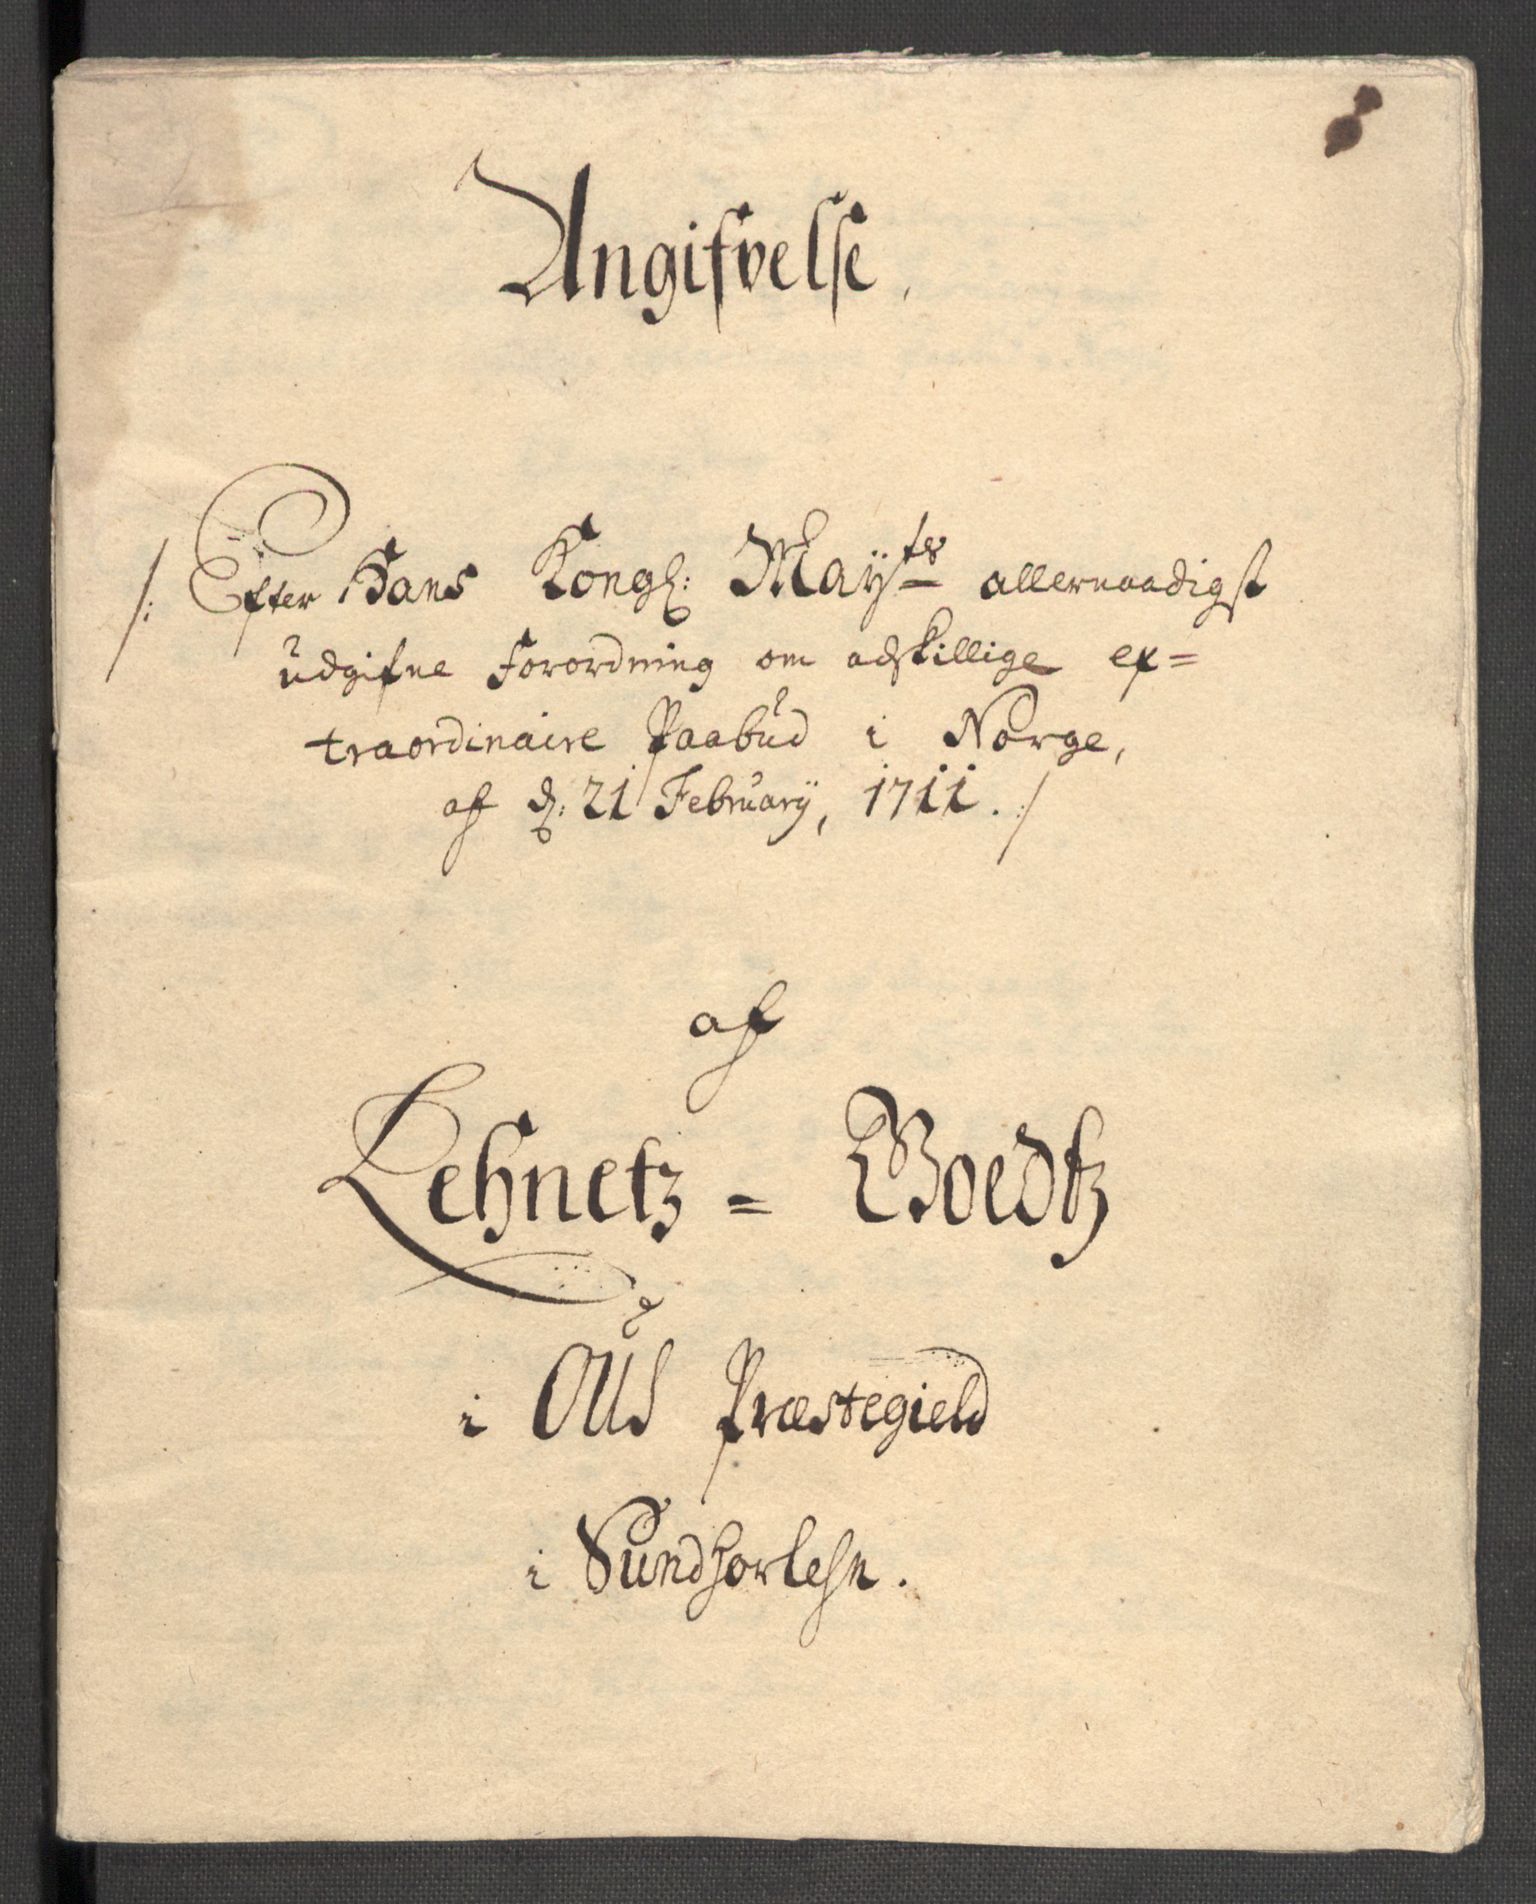 Angifvelse,
/: Efter Hans Kongl: Maÿ.ts allernaadigst
udgifne Forordning om adskillige ex=
traordinaire Paabud i Norge,
af d: 21 Februarÿ, 1711. :/
af
Lehnetz = Goedtz
i Ous Præstegield
i Sundhorlehn.